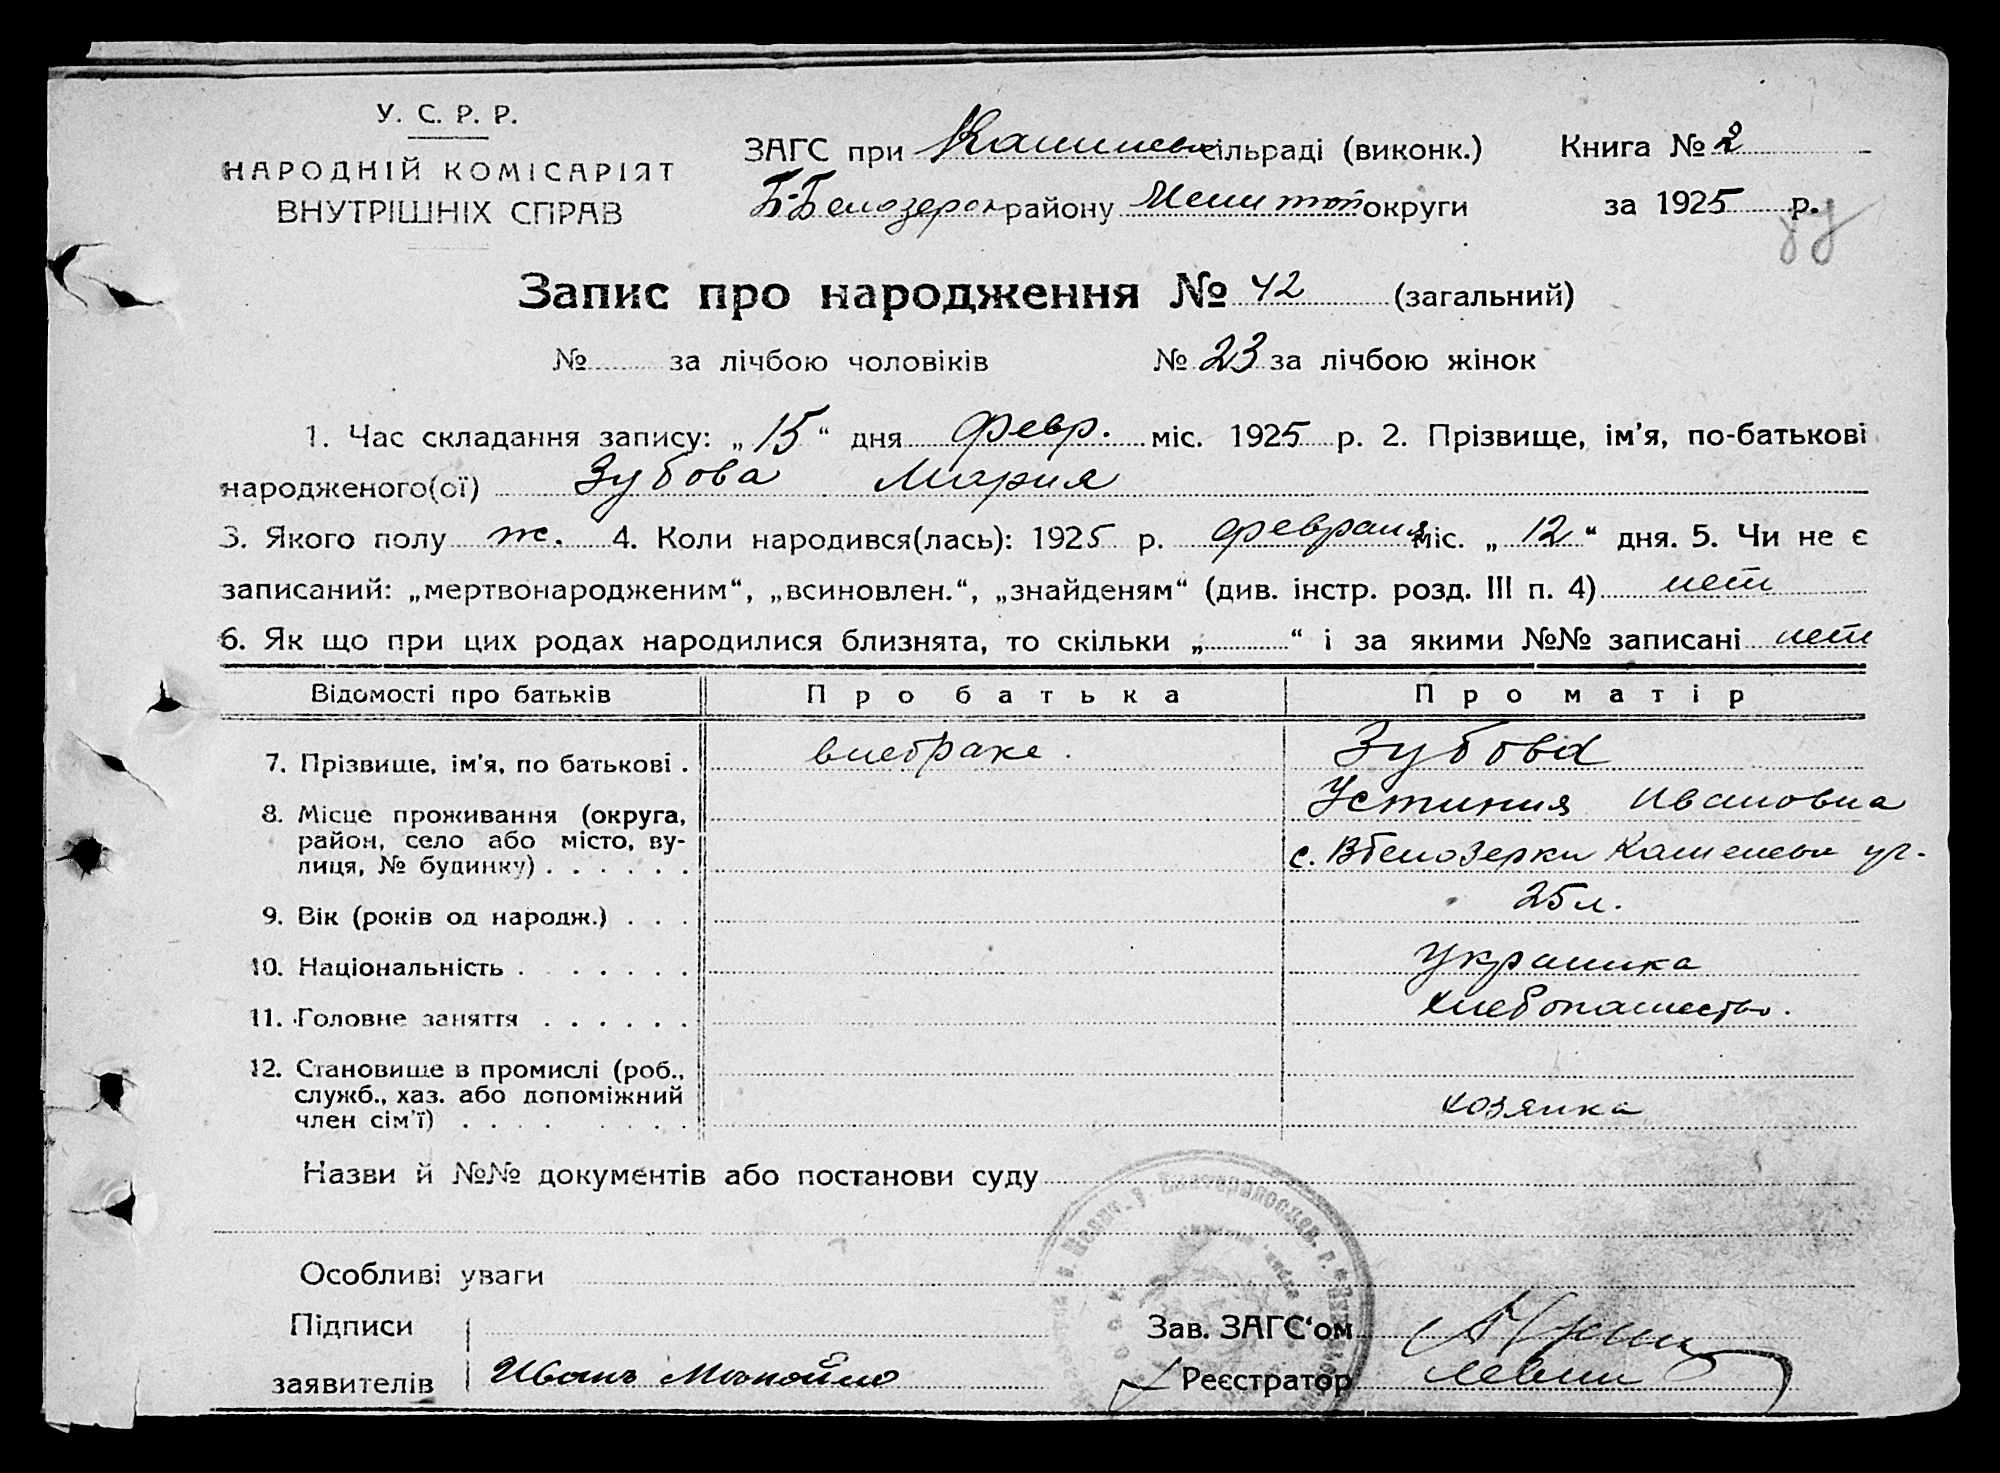 У. С. Р. Р.
НАРОДНІЙ КОМІСАРІЯТ
ВНУТРІШНІХ СПРАВ
ЗАГС при сільраді (виконк.) Книга № 2
Б-Белозерск району Мелитоп округи за 1925 р.
Запис про народження № 42 (загальний)
№ за лічбою чоловіків № 23 за лічбою жінок
1. Час складання запису: „15“ дня февр. міс. 1925 р. 2. Прізвище, ім'я, по-батькові
народженого(ої) Зубова Мария
3. Якого полу ж. 4. Коли народився(лась): 1925 р. февраля міс. „12“ дня. 5. Чи не є
записаний: „мертвонародженим“, „всиновлен.“, „знайденям“ (див. інстр. розд. III п. 4) нет
6. Як що при цих родах народилися близнята, то скільки „ “ і за якими №№ записані нет
Відомості про батьків Про батька Про матір
7. Прізвище, ім'я, по батькові . внебраке . Зубова
Устиния Ивановна
8. Місце проживання (округа,
район, село або місто, ву-
лиця, № будинку) . . . . . . с. ВБелозерки
9. Вік (років од народж.) . . . 25 л.
10. Національність . . . . . . . украинка
11. Головне заняття . . . . . . хлебопашество.
12. Становище в промислі (роб.,
служб., хаз. або допоміжний
член сім'ї) . . . . . . . . хозяика
Назви й №№ документів або постанови суду
Особливі уваги
Підписи
заявителів Иванъ
Зав. ЗАГС'ом
Реєстратор Левин